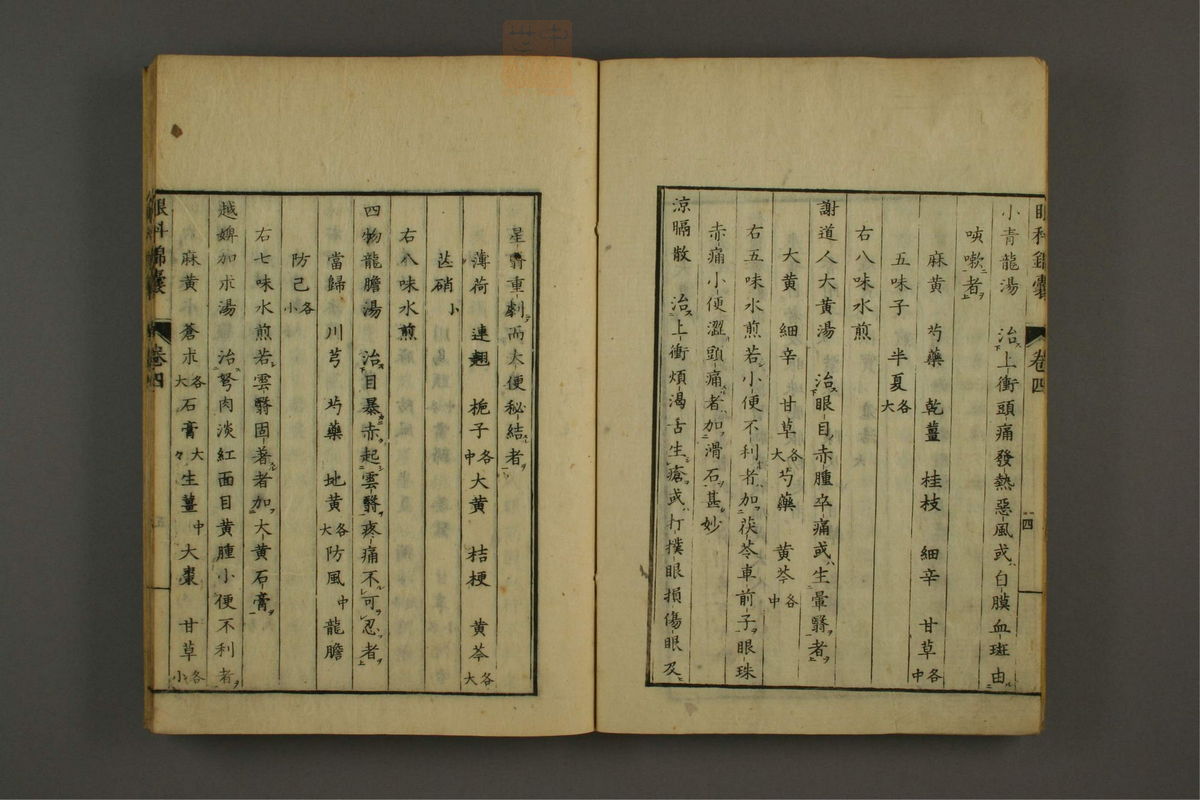 眼科錦囊 卷四 四
小青龍湯 治上衝頭痛發熱惡風或白膜血斑由
咳嗽者
麻黄 芍藥 乾薑 桂枝 細辛 甘草各中
五味子 半夏各大
右八味水煎
謝道人大黄湯 治眼目赤腫卒痛或生暈翳者
大黄 細辛 甘草各大芍藥 黄芩各中
右五味水煎若小便不利者加茯苓車前子眼珠
赤痛小便澀頭痛者加滑石甚妙
涼膈散 治上衝煩渴舌生瘡或打撲眼損傷眼及
星翳重劇而大便秘結者
薄荷 連翹 梔子各中大黄 桔梗 黄芩各大
芒硝小
右八味水煎
四物龍膽湯 治目暴赤起雲翳疼痛不可忍者
當歸 川芎 芍藥 地黄各大防風中 龍膽
防己各小
右七味水煎若雲翳固著者加大黄石膏
越婢加朮湯 治弩肉淡紅面目黄腫小便不利者
麻黄 蒼朮各大石膏大々生薑中大棗 甘草各小
眼科錦囊 卷四